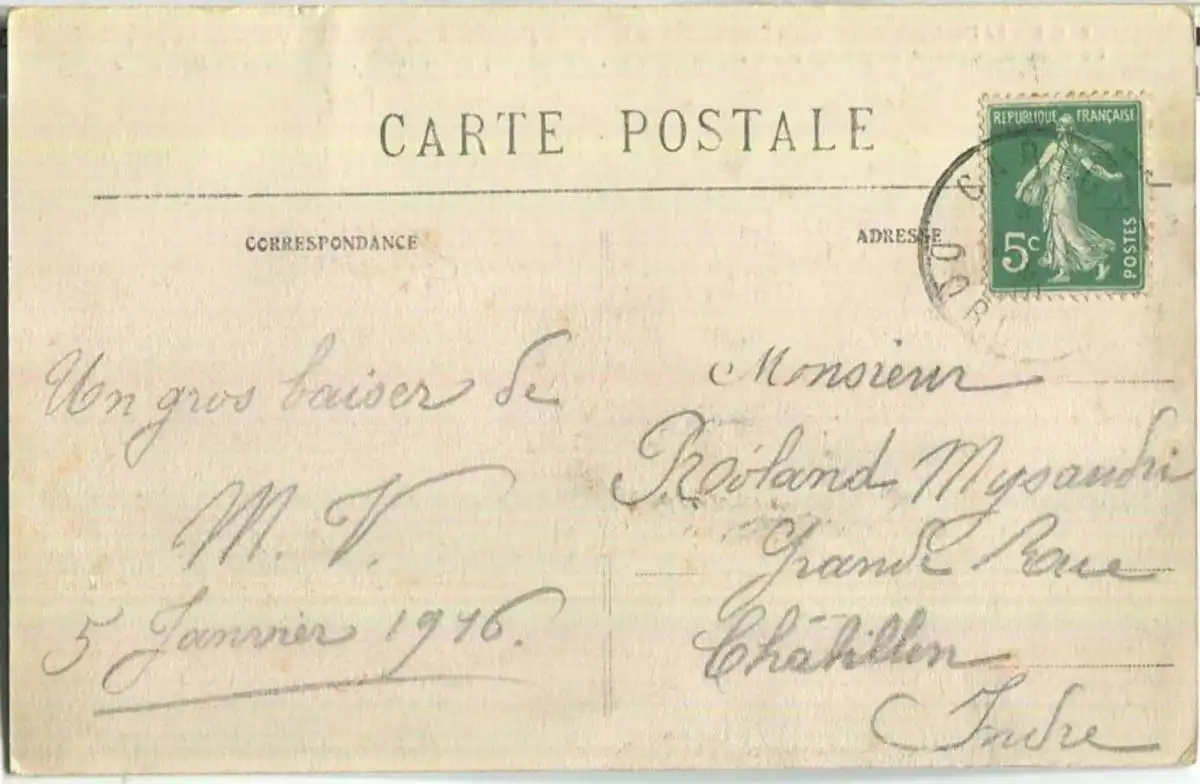 CARTE POSTALE
CORRESPONDANCE
ADRESSE
REPUBLIQUE FRANÇAISE
5c
POSTES
Un gros baiser de
M. V.
5 Janvier 1916.
Monsieur
Roland Mysandri
Grande Rue
Châtillon
Indre